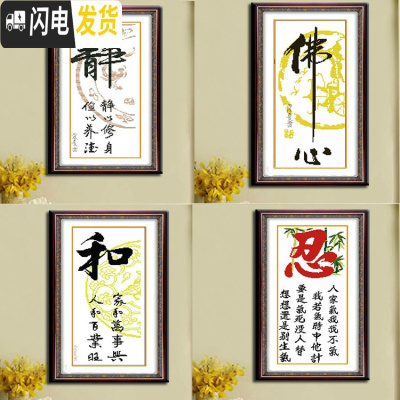 闪电发货
静
静以修身
俭以养德
佛心
和
家和萬事興
人和百業旺
忍
人家氣我我不氣
我若氣時中他計
要是氣死没人替
想想還是别生氣